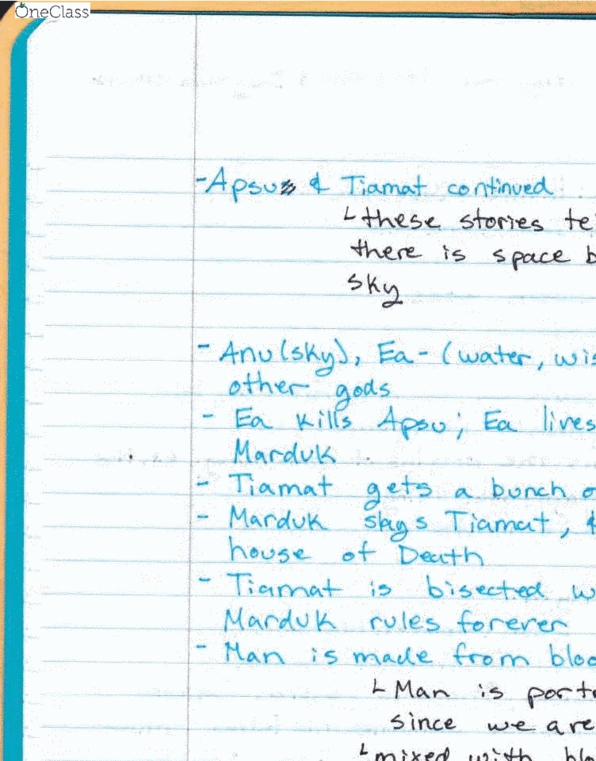 OneClass
-Apsu & Tiamat continued
↳these stories te
there is space b
sky
- Anu(sky), Ea- (water, wis
other gods
- Ea kills Apsu; Ea lives
Marduk
- Tiamat gets a bunch o
- Marduk slays Tiamat, &
house of Death
- Tiamat is bisected w
Marduk rules forever
- Man is made from bloo
↳Man is porte
since we are
↳mixed with blo